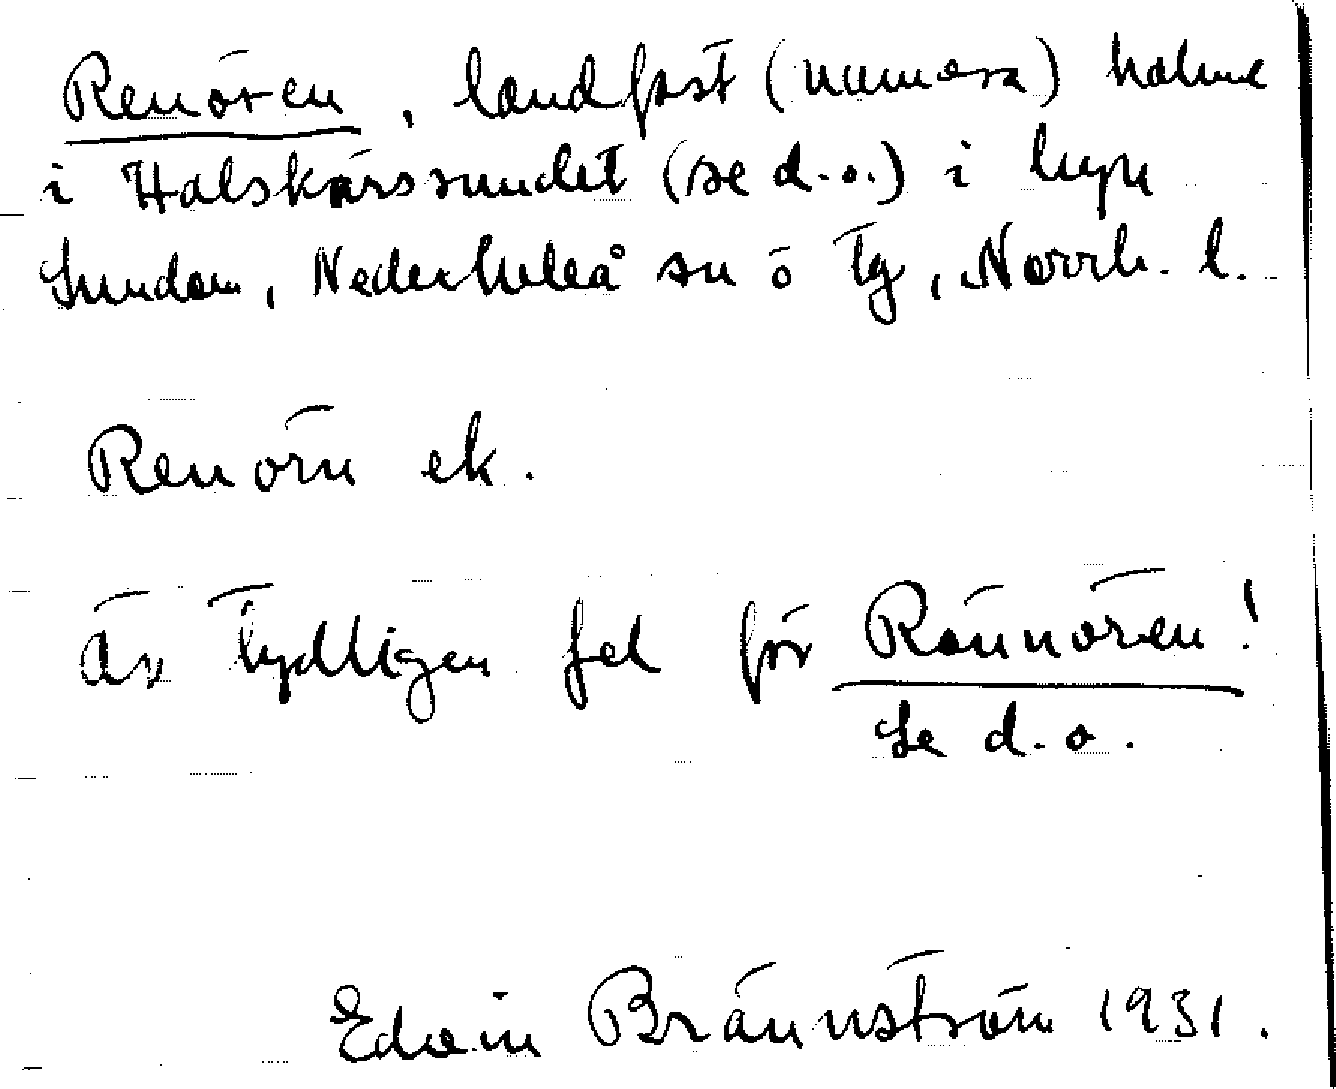 Renören, landfast (numera) holme
i Halskärssundet (se d.o.) i byn
Sundom, Nederluleå sn ö tg, Norrb. l.
Renörn ek.
Är tydligen fel för Rönnören!
Se d.o.
Edvin Brännström 1931.